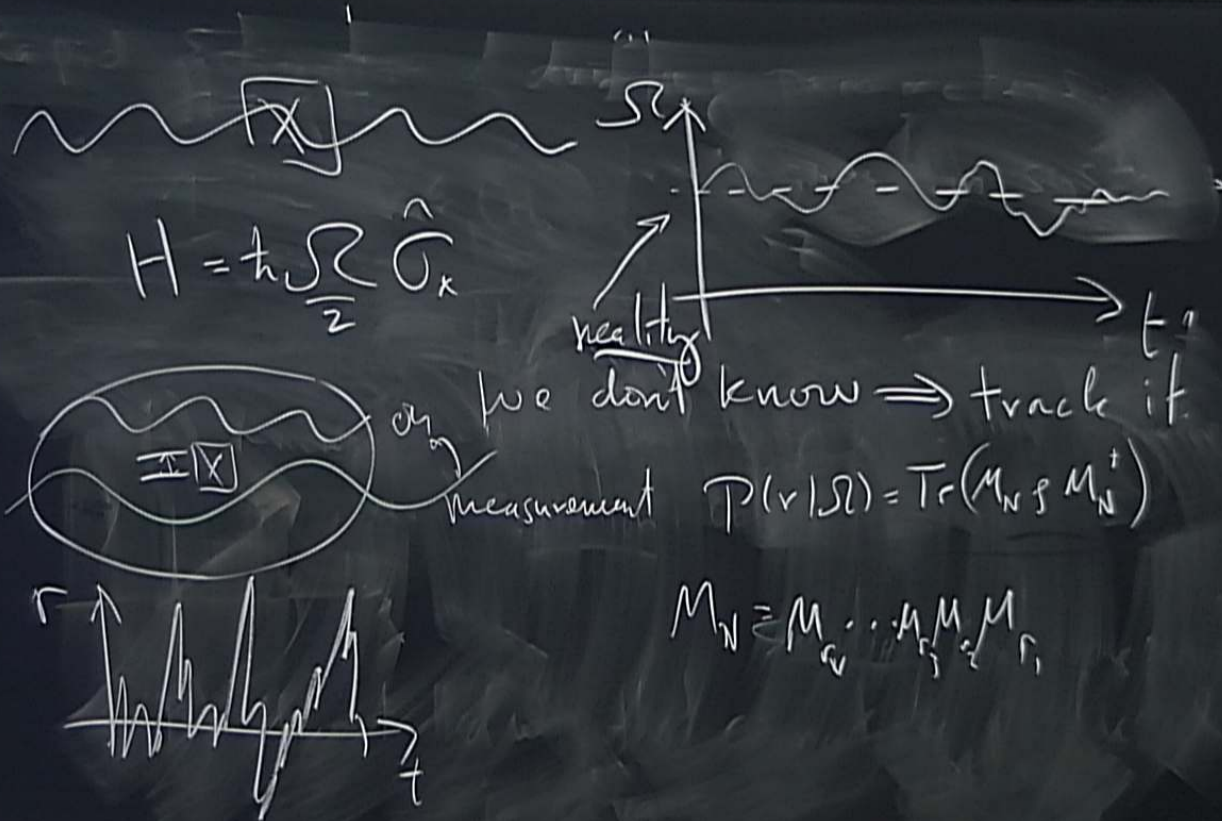 X
Ω
H = ħ Ω/2 σ̂ₓ
reality
t
we don't know ⇒ track it
X
measurement P(r|Ω) = Tr(M_N ρ M_N†)
r
M_N ≡ M_{r_N} ... M_{r_3} M_{r_2} M_{r_1}
t